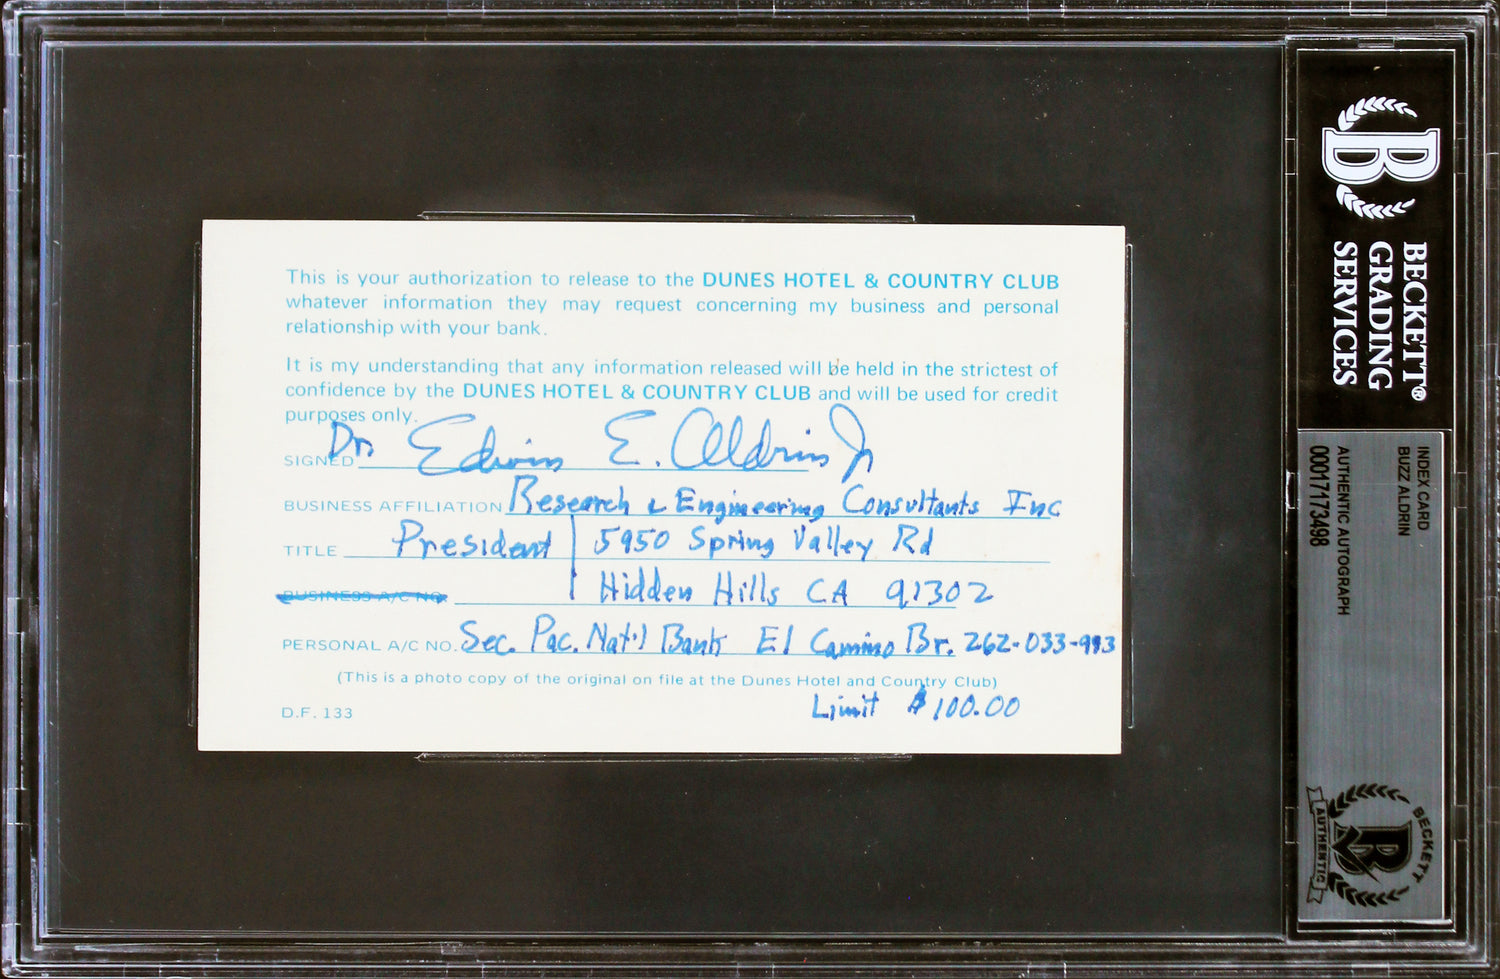 This is your authorization to release to the DUNES HOTEL & COUNTRY CLUB
whatever information they may request concerning my business and personal
relationship with your bank.
It is my understanding that any information released will be held in the strictest of
confidence by the DUNES HOTEL & COUNTRY CLUB and will be used for credit
purposes only.
SIGNED Dr. Edwin E. Aldrin Jr
BUSINESS AFFILIATION Research & Engineering Consultants Inc
TITLE President 5950 Spring Valley Rd
BUSINESS A/C NO. Hidden Hills CA 91302
PERSONAL A/C NO. Sec. Pac. Nat'l Bank El Camino Br. 262-033-983
(This is a photo copy of the original on file at the Dunes Hotel and Country Club)
Limit $100.00
D.F. 133
B
BECKETT®
GRADING
SERVICES
INDEX CARD
BUZZ ALDRIN
AUTHENTIC AUTOGRAPH
00017173498
BECKETT
B
AUTHENTIC